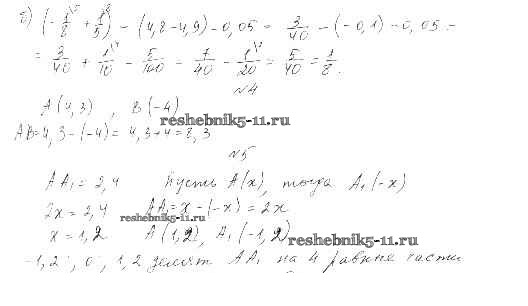 б) (-1/8 + 1/5) - (4,8-4,9) - 0,05 = 3/40 - (-0,1) - 0,05 =
= 3/40 + 1/10 - 5/100 = 7/40 - 1/20 = 5/40 = 1/8.
№4
A(4,3), B(-4)
AB=4,3-(-4)= 4,3+4=8,3
reshebnik5-11.ru
№5
AA₁ = 2,4 Пусть A(x), тогда A₁(-x)
2x = 2,4 AA₁= x - (-x) = 2x
reshebnik5-11.ru
x = 1,2 A(1,2), A₁(-1,2)
reshebnik5-11.ru
-1,2; 0; 1,2 делят AA₁ на 4 равные части